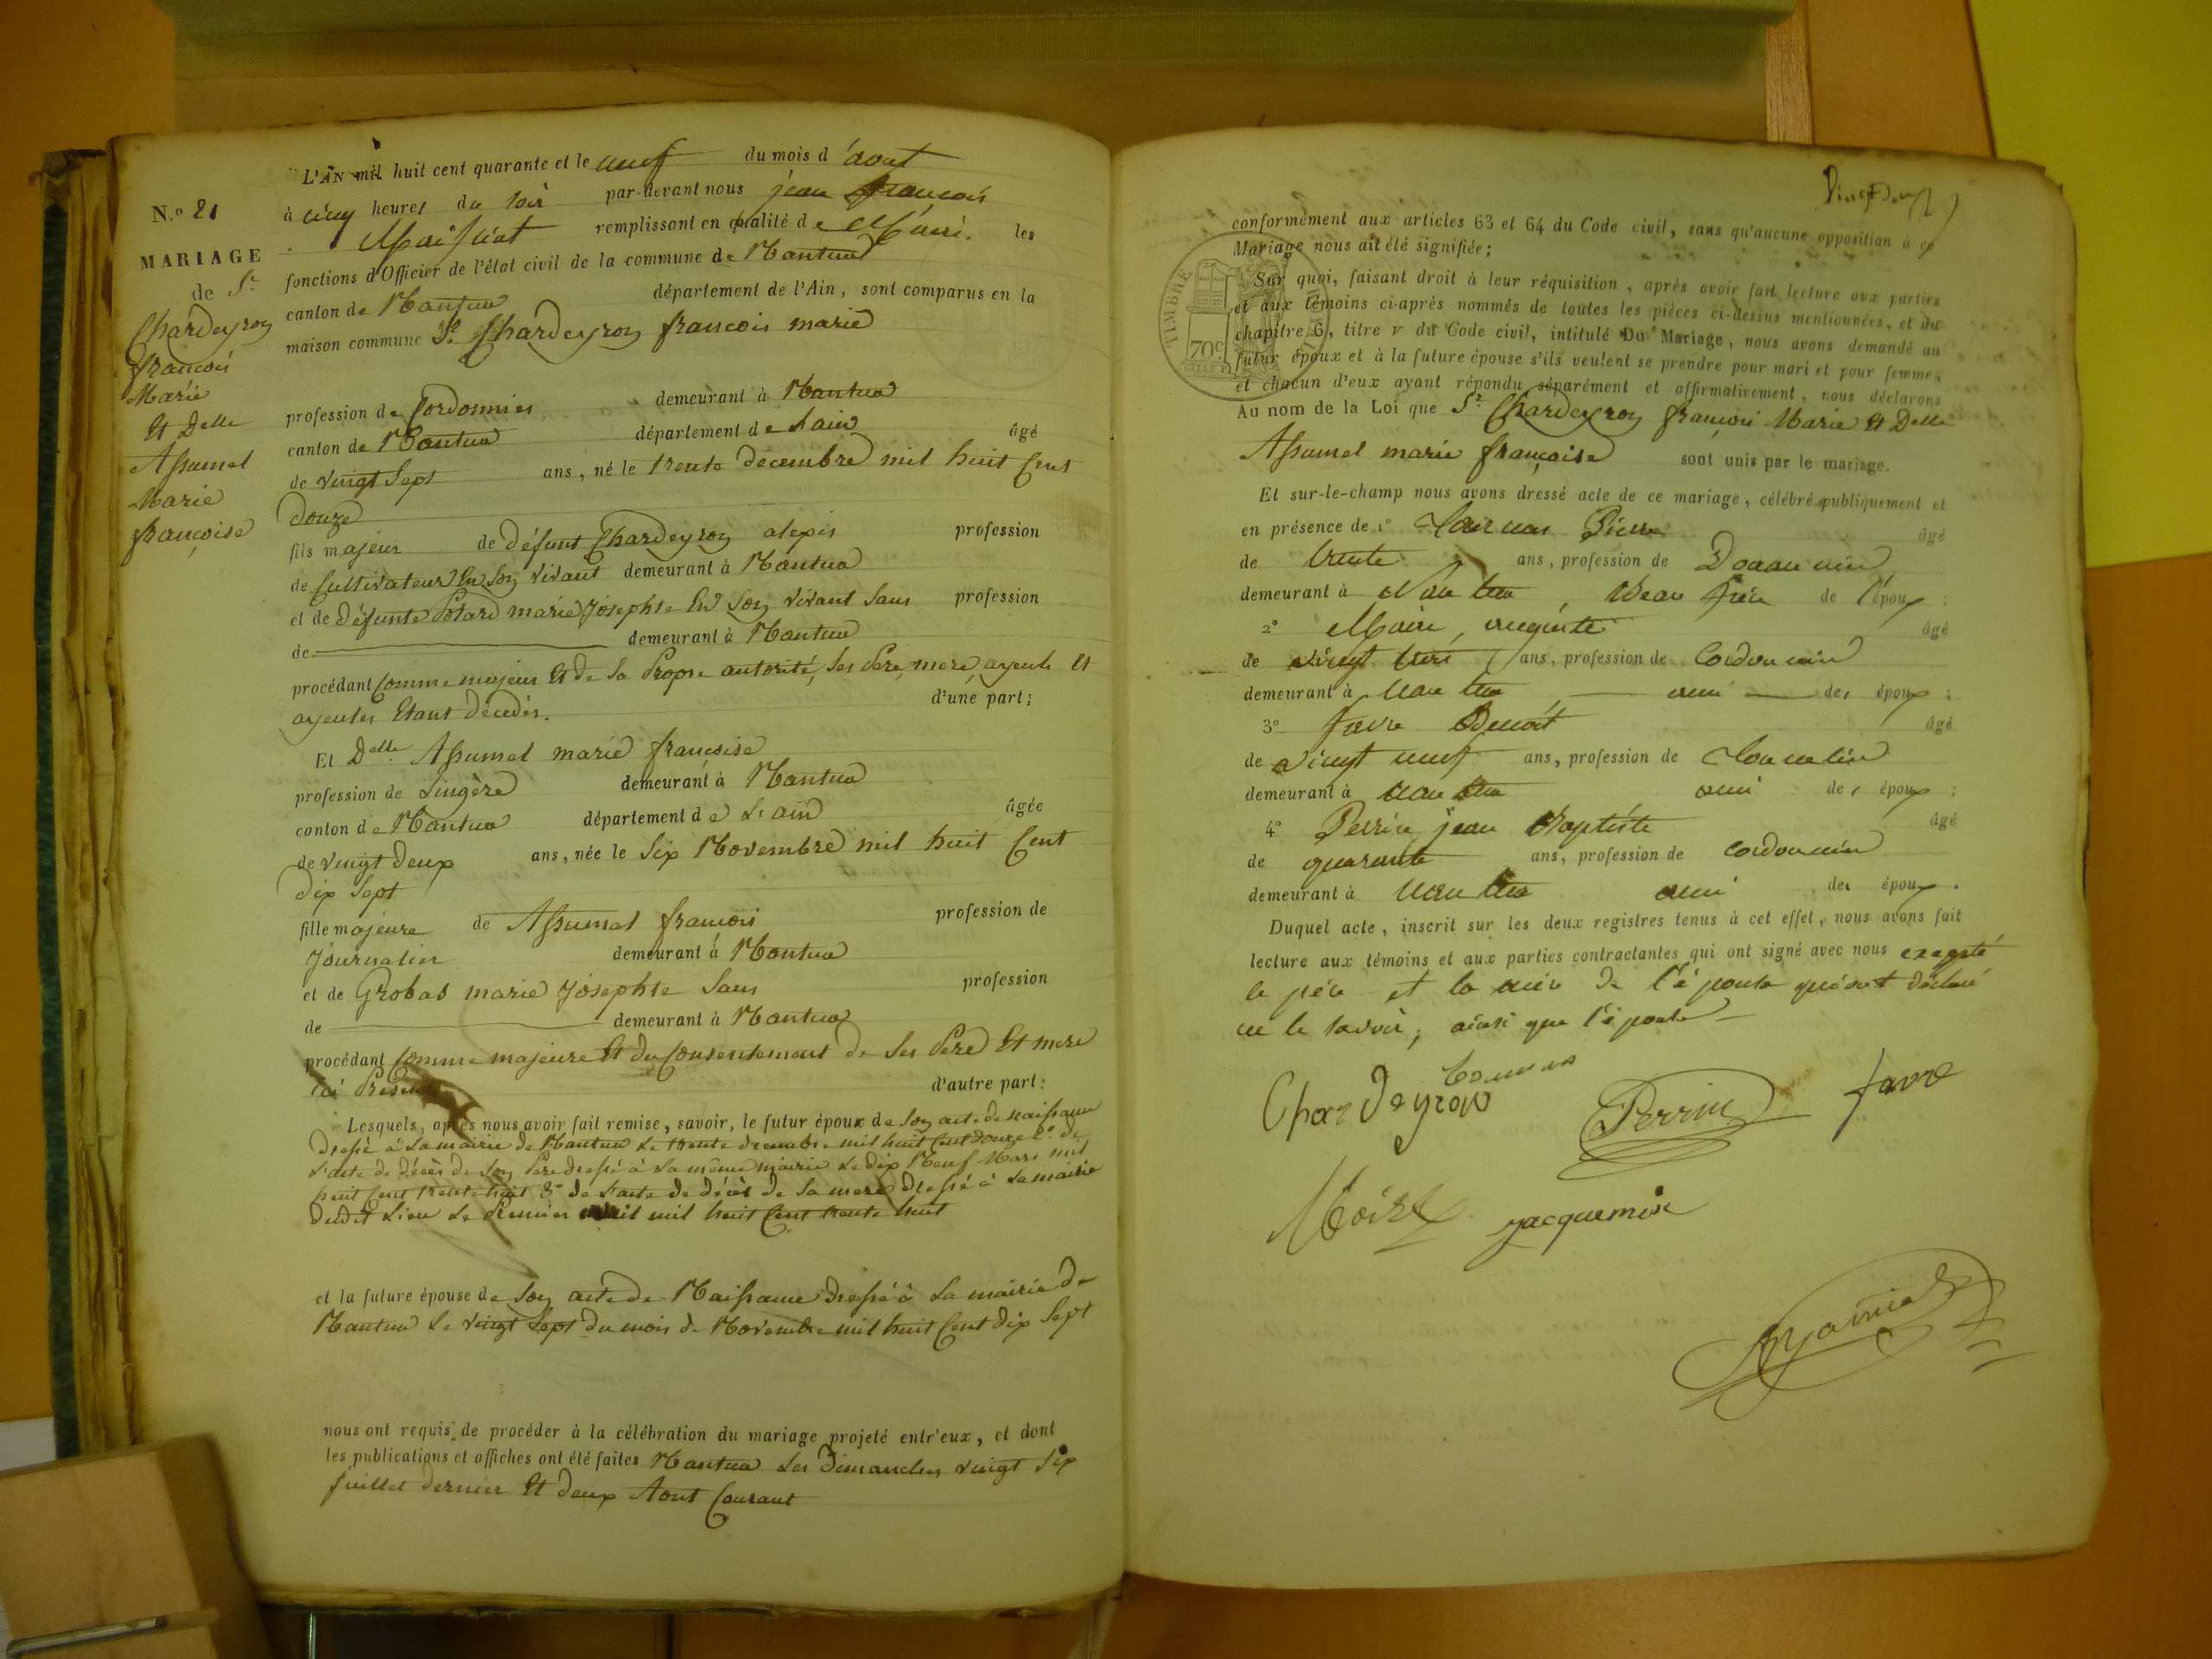 N.° 21
MARIAGE
de S.r
Chardeyron
françois
Marie
Et Delle
Assumel
Marie
françoise
L'AN mil huit cent quarante et le neuf du mois d'aout
à cinq heures du soir par-devant nous jean françois
remplissant en qualité de Maire les
fonctions d'Officier de l'état civil de la commune de Nantua
canton de Nantua département de l'Ain, sont comparus en la
maison commune Sr Chardeyron francois marie
profession de Cordonnier demeurant à Nantua
canton de Nantua département de Lain âgé
de vingt Sept ans, né le trente decembre mil huit Cent
douze
fils majeur de défunt Chardeyron alexis profession
de Cultivateur En Son vivant demeurant à Nantua
et de défunte Potard marie Josephte En Son vivant Sans profession
de demeurant à Nantua
procédant Comme majeur Et de Sa Propre autorité, Ses Pere, mere, ayeuls Et
ayeules Etant décedés. d'une part;
Et Delle Assumel marie francoise
profession de Lingère demeurant à Nantua
canton de Nantua département de L'ain âgée
de vingt deux ans, née le Six Novembre mil huit Cent
dix Sept
fille majeure de Assumel francois profession de
Journalier demeurant à Nantua
et de Grobas marie Josephte Sans profession
de demeurant à Nantua
procédant Comme majeure Et du Consentement de Ses Pere Et mere
ici Présents d'autre part:
Lesquels, après nous avoir fait remise, savoir, le futur époux de Son acte de naissance
Dressé à la mairie de Nantua Le trente decembre mil huit Cent douze 2.° de
L'acte de décès de Son Pere dressé à la même mairie Le dix Neuf Mars mil
huit Cent trente huit 3.° de L'acte de décès de Sa mere Dressé à La mairie
dudit Lieu Le Premier avril mil huit Cent trente huit
et la future épouse de Son acte de Naissance Dressé à La mairie de
Nantua Le vingt Sept du mois de Novembre mil huit Cent dix Sept
nous ont requis de procéder à la célébration du mariage projeté entr'eux, et dont
les publications et affiches ont été faites Nantua Les Dimanches vingt Six
Juillet dernier Et deux Aout Courant
TIMBRE
70c
conformément aux articles 63 et 64 du Code civil, sans qu'aucune opposition à ce
Mariage nous ait été signifiée;
Sur quoi, faisant droit à leur réquisition, après avoir fait lecture aux parties
et aux témoins ci-après nommés de toutes les pièces ci-dessus mentionnées, et du
chapitre 6, titre v du Code civil, intitulé Du Mariage, nous avons demandé au
futur époux et à la future épouse s'ils veulent se prendre pour mari et pour femme,
et chacun d'eux ayant répondu séparément et affirmativement, nous déclarons
Au nom de la Loi que Sr Chardeyron françois Marie Et Delle
Assumel marie françoise sont unis par le mariage.
Et sur-le-champ nous avons dressé acte de ce mariage, célébré publiquement et
en présence de 1° Pierre âgé
de trente ans, profession de
demeurant à Nantua, Beau frère de l'époux;
2° Moine, auguste âgé
de vingt trois ans, profession de Cordonnier
demeurant à Nantua ami des époux;
3° favre Benoit âgé
de vingt neuf ans, profession de
demeurant à Nantua ami des époux;
4° Perrin jean Baptiste âgé
de quarante ans, profession de cordonnier
demeurant à Nantua ami des époux.
Duquel acte, inscrit sur les deux registres tenus à cet effet, nous avons fait
lecture aux témoins et aux parties contractantes qui ont signé avec nous excepté
le père et la mère de l'épouse qui ont déclaré
ne le savoir, ainsi que l'épouse
Chardeyron
Perrin
favre
jacquemin